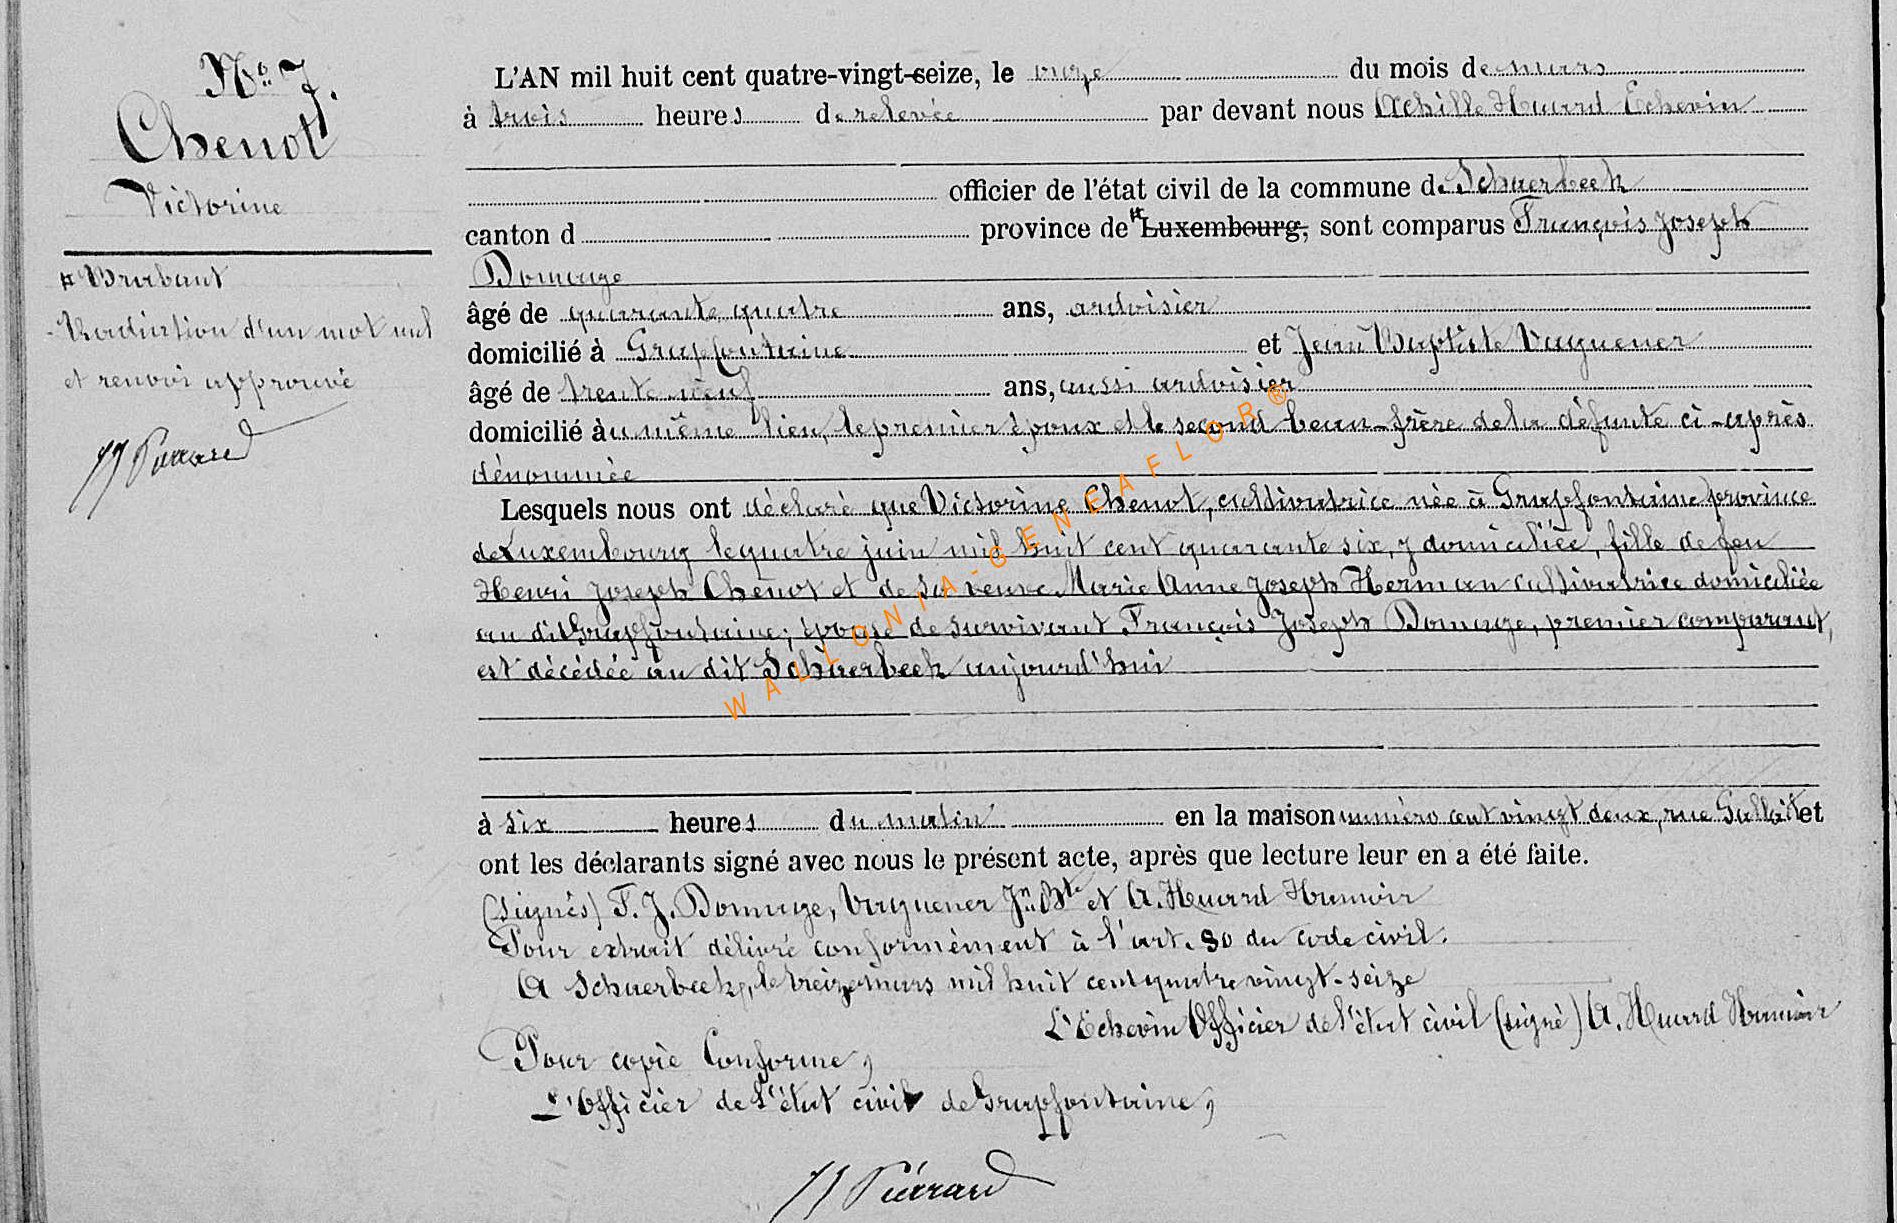 No 7.
Chenot
Victorine
# Brabant
Radiation d'un mot nul
et renvoi approuvé
Pierrard
L'AN mil huit cent quatre-vingt-seize, le onze du mois de mars
à trois heures de relevée par devant nous Achille Huard Echevin
officier de l'état civil de la commune de Schaerbeek
canton d province de # Luxembourg, sont comparus François Joseph
Domage
âgé de quarante quatre ans, ardoisier
domicilié à Grapfontaine et Jean Baptiste Vaguener
âgé de trente neuf ans, aussi ardoisier
domicilié au même lieu, le premier époux et le second beau-frère de la défunte ci-après
dénommée
Lesquels nous ont déclaré que Victorine Chenot, cultivatrice née à Grapfontaine province
de Luxembourg le quatre juin mil huit cent quarante six, y domiciliée, fille de feu
Henri Joseph Chenot et de sa veuve Marie Anne Joseph Herman cultivatrice domiciliée
au dit Grapfontaine; épouse de survivant François Joseph Domage, premier comparant,
est décédée au dit Schaerbeek aujourd'hui
à six heures du matin en la maison numéro cent vingt deux, rue Gallait et
ont les déclarants signé avec nous le présent acte, après que lecture leur en a été faite.
(signés) F. J. Domage, Vaguener Jn Bte et A. Huard Hamoir
Pour extrait délivré conformément à l'art. 80 du code civil.
A Schaerbeek, le treize mars mil huit cent quatre vingt-seize
L'Echevin Officier de l'état civil (signé) A. Huard Hamoir
Pour copie Conforme,
L'Officier de l'état civil de Grapfontaine,
Pierrard
WALLONIA-GENEAFLOR®